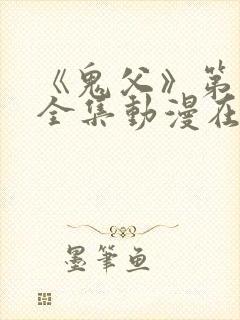 《鬼父》第
全集動漫在
墨筆魚